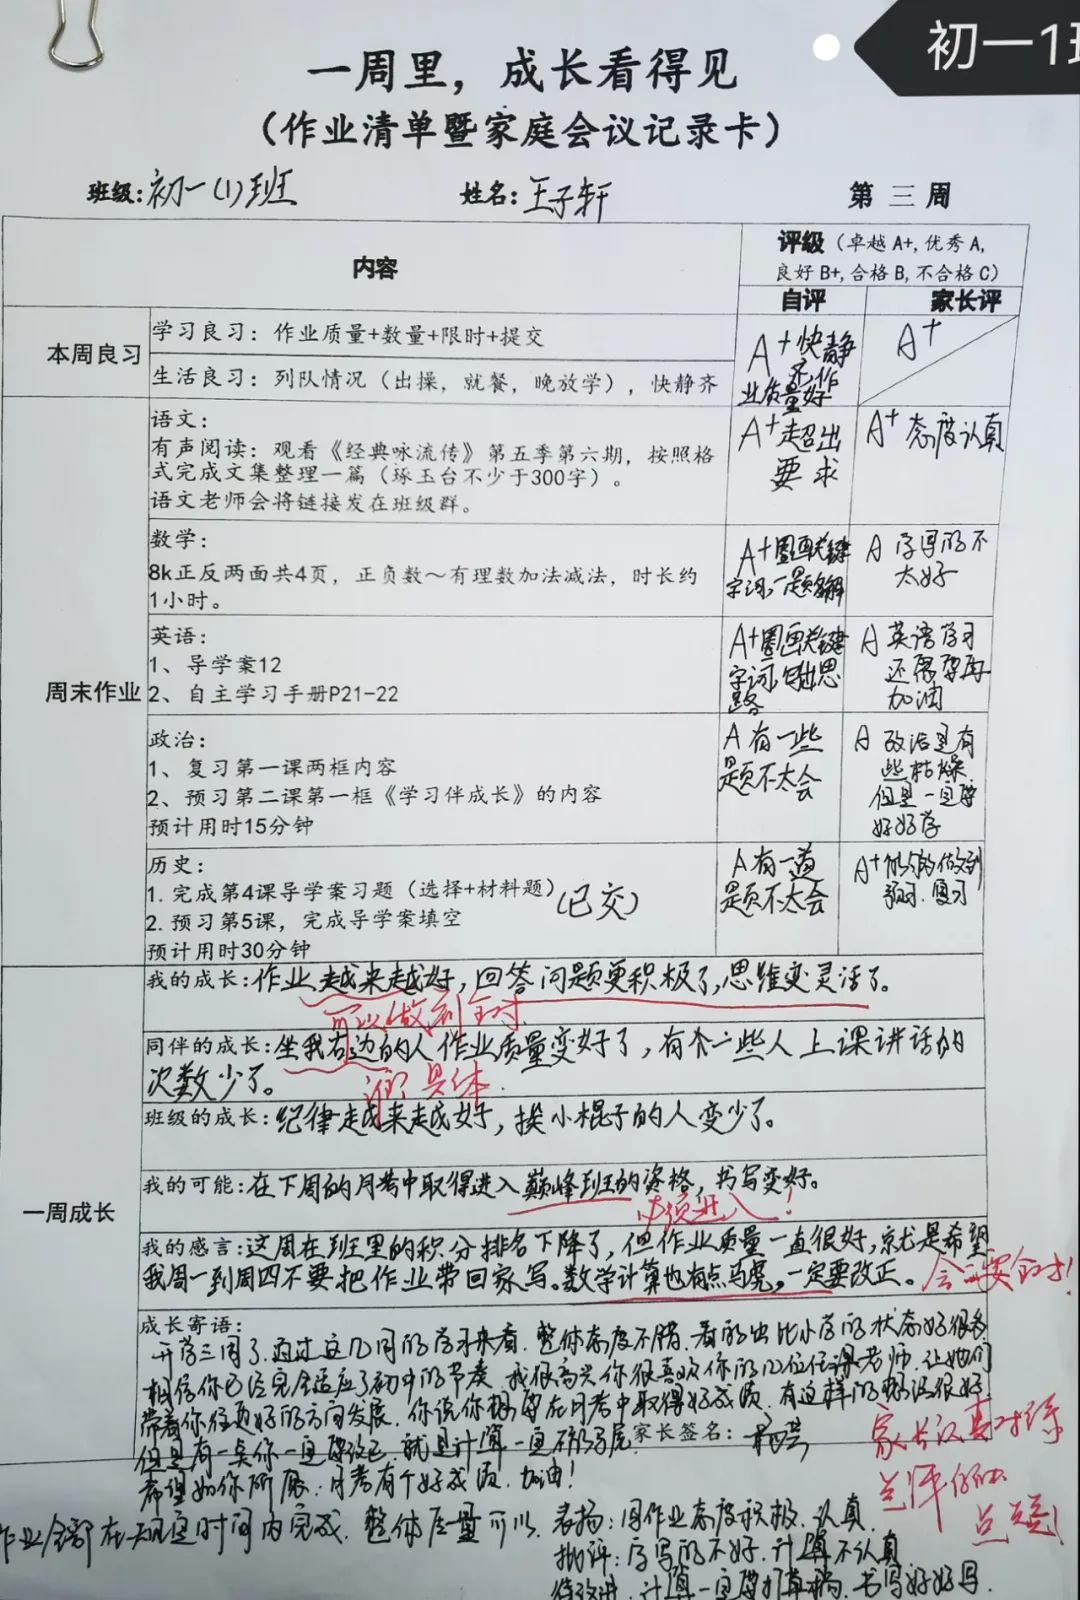 初一1班
一周里，成长看得见
（作业清单暨家庭会议记录卡）
班级:初一(1)班 姓名:王子轩 第 三 周
内容
评级（卓越 A+, 优秀 A,
良好 B+, 合格 B, 不合格 C）
自评 家长评
本周良习
学习良习：作业质量+数量+限时+提交
生活良习：列队情况（出操，就餐，晚放学），快静齐
A+快静
齐,作
业质量好
A+
周末作业
语文：
有声阅读：观看《经典咏流传》第五季第六期，按照格
式完成文集整理一篇（琢玉台不少于300字）。
语文老师会将链接发在班级群。
A+超出
要求
A+态度认真
数学：
8k正反两面共4页，正负数～有理数加法减法，时长约
1小时。
A+圈画关键
字词,一题多解
A 字写的不
太好
英语：
1、导学案12
2、自主学习手册P21-22
A+圈画关键
字词,思
路
A 英语学习
还需要再
加油
政治：
1、复习第一课两框内容
2、预习第二课第一框《学习伴成长》的内容
预计用时15分钟
A 有一些
题不太会
A 政治是有
些枯燥,
但是一定要
好好学
历史：
1. 完成第4课导学案习题（选择+材料题）(已交)
2. 预习第5课，完成导学案填空
预计用时30分钟
A 有一道
题不太会
A+能够做到
预习.复习
一周成长
我的成长:作业越来越好，回答问题更积极了,思维变灵活了。
可以做到全对
同伴的成长:坐我右边的人作业质量变好了，有一些人上课讲话的
次数少了。
具体
班级的成长:纪律越来越好，挨小棍子的人变少了。
我的可能:在下周的月考中取得进入巅峰班的资格，书写变好。
必须进入!
我的感言:这周在班里的积分排名下降了，但作业质量一直很好,就是希望
我周一到周四不要把作业带回家写。数学计算也有点马虎，一定要改正。
会要全对!
成长寄语:
开学三周了,通过这几周的学习来看.整体态度不错.看的出比小学的状态好很多
相信你已经完全适应了初中的节奏.我很高兴你很喜欢你的几位任课老师.让她们
带着你往更好的方向发展.你说你想要在月考中取得好成绩.有这样的想法很好
但是有一点你一定要约己.就是计算一定不能马虎 家长签名：
希望如你所愿.月考有个好成绩.加油!
家长认真对待
点赞!
作业全部在规定时间内完成.整体质量可以.
表扬:周作业态度积极.认真.
批评:字写的不好.计算不认真
待改进.计算一定要打草稿.书写好好写.